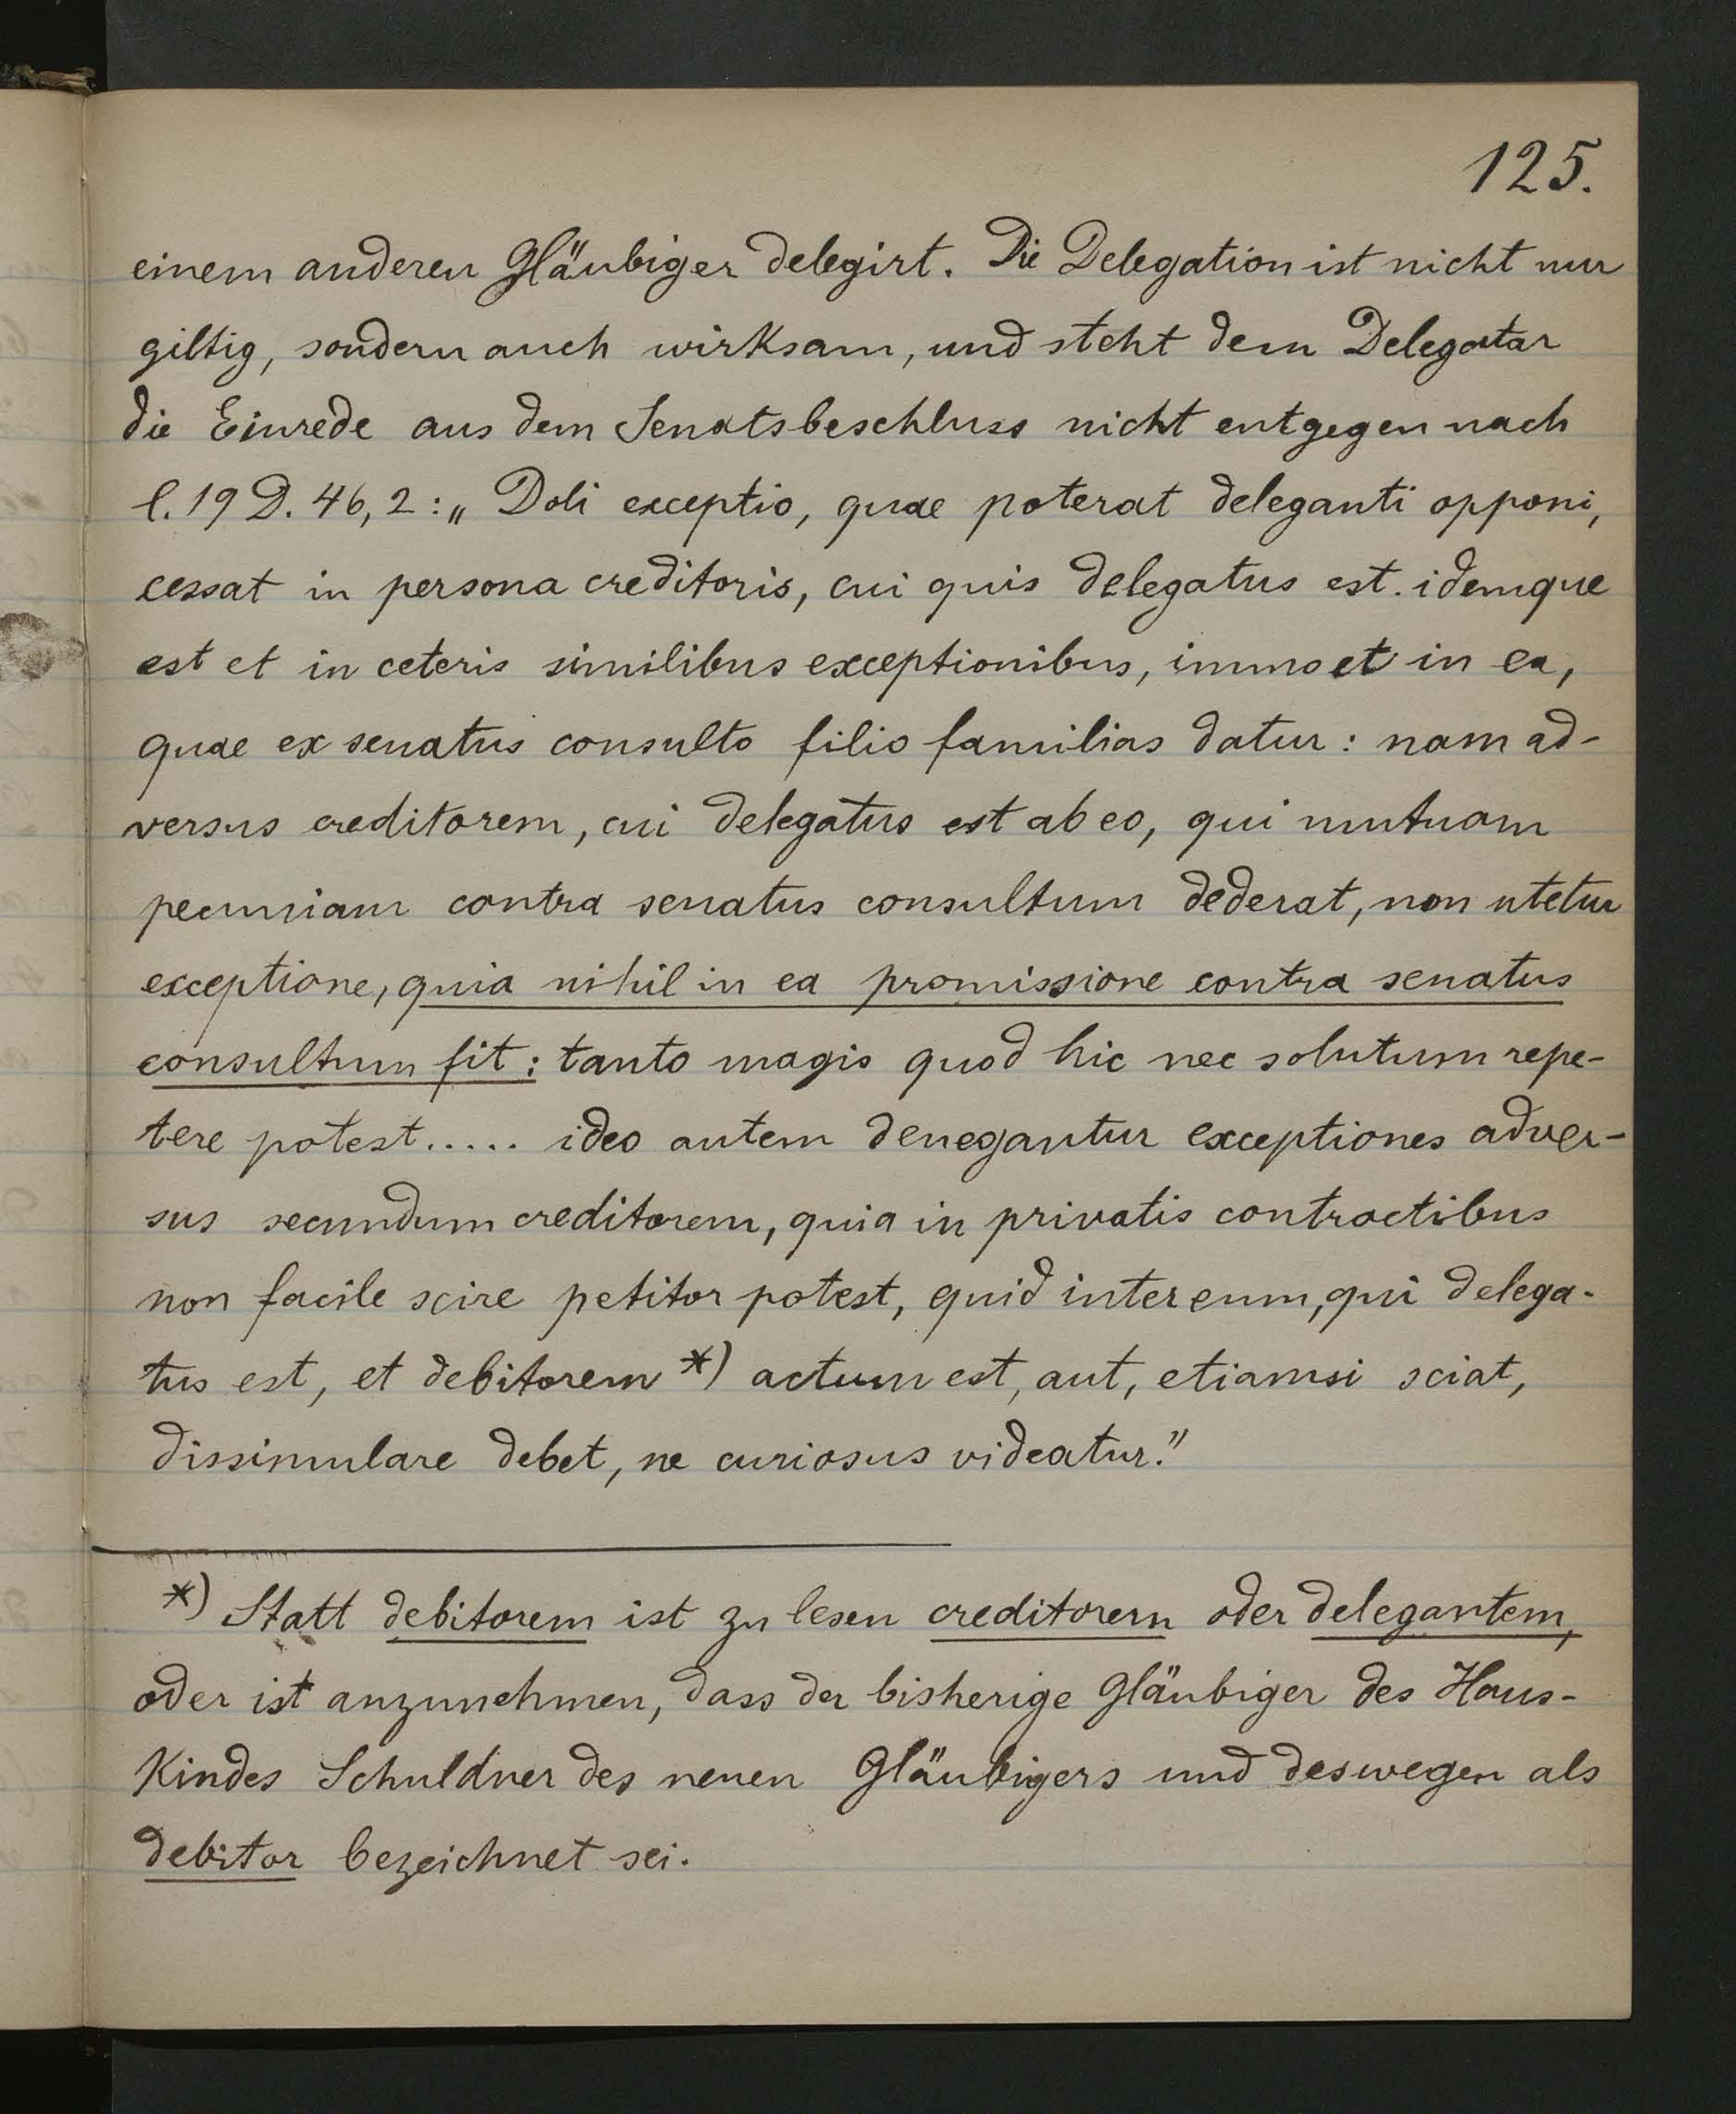 125.
einem anderen Gläubiger delegirt. Die Delegation ist nicht nur
giltig, sondern auch wirksam, und steht dem Delegatar
die Einrede aus dem Senatsbeschluss nicht entgegen nach
l. 19 D. 46, 2: „Doli exceptio, quae poterat deleganti opponi,
cessat in persona creditoris, cui quis delegatus est. idemque
est et in ceteris similibus exceptionibus, immo et in ea,
quae ex senatus consulto filio familias datur: nam ad-
versus creditorem, cui delegatus est ab eo, qui mutuam
pecuniam contra senatus consultum dederat, non utetur
exceptione, quia nihil in ea promissione contra senatus
consultum fit: tanto magis quod hic nec solutum repe-
tere potest..... ideo autem denegantur exceptiones adver-
sus secundum creditorem, quia in privatis contractibus
non facile scire petitor potest, quid inter eum, qui delega-
tus est, et debitorem *) actum est, aut, etiamsi sciat,
dissimulare debet, ne curiosus videatur."
*) Statt debitorem ist zu lesen creditorem oder delegantem,
oder ist anzunehmen, dass der bisherige Gläubiger des Haus-
kindes Schuldner des neuen Gläubigers und deswegen als
debitor bezeichnet sei.